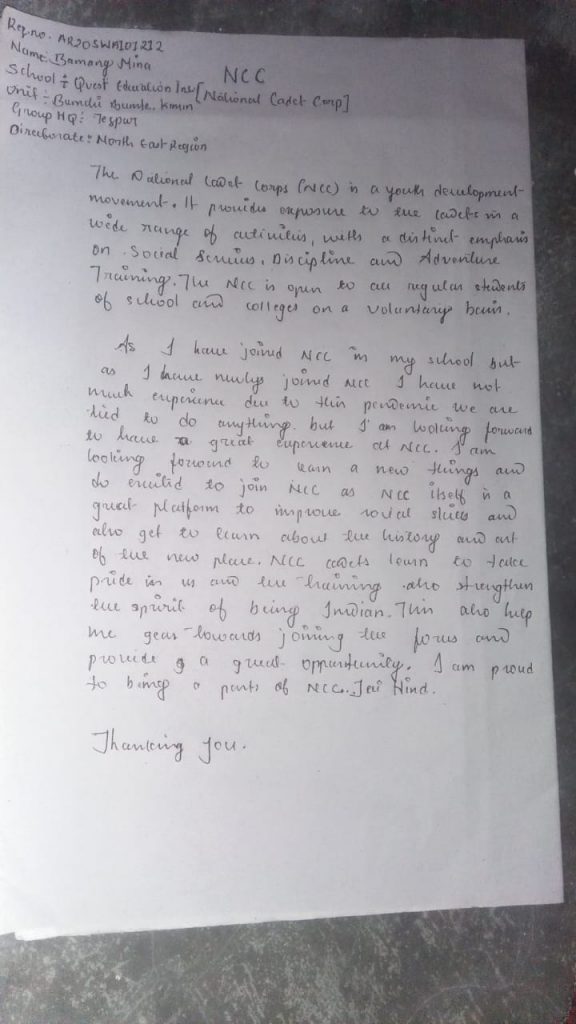 Reg no. AR20SWA101212
Name: Bamang Mina
School : Quest Education Ins
NCC
[National Cadet Corp]
Unit :- Kimin
Group HQ: Tezpur
Directorate: North East Region
The National Cadet Corps (NCC) is a youth development
movement. It provides exposure to the cadets in a
wide range of activities, with a distinct emphasis
on Social Services, Discipline and Adventure
Training. The NCC is open to all regular students
of school and colleges on a voluntary basis.
As I have joined NCC in my school but
as I have newly joined NCC I have not
much experience due to this pendemic we are
tied to do anything. but I am looking forward
to have a great experience at NCC. I am
looking forward to learn a new things and
so excited to join NCC as NCC itself is a
great platform to improve social skills and
also get to learn about the history and art
of the new place. NCC cadets learn to take
pride in us and the training also strengthen
the spirit of being Indian. This also help
me gear towards joining the forces and
provide a great opportunity. I am proud
to being a parts of NCC. Jai Hind.
Thanking you.